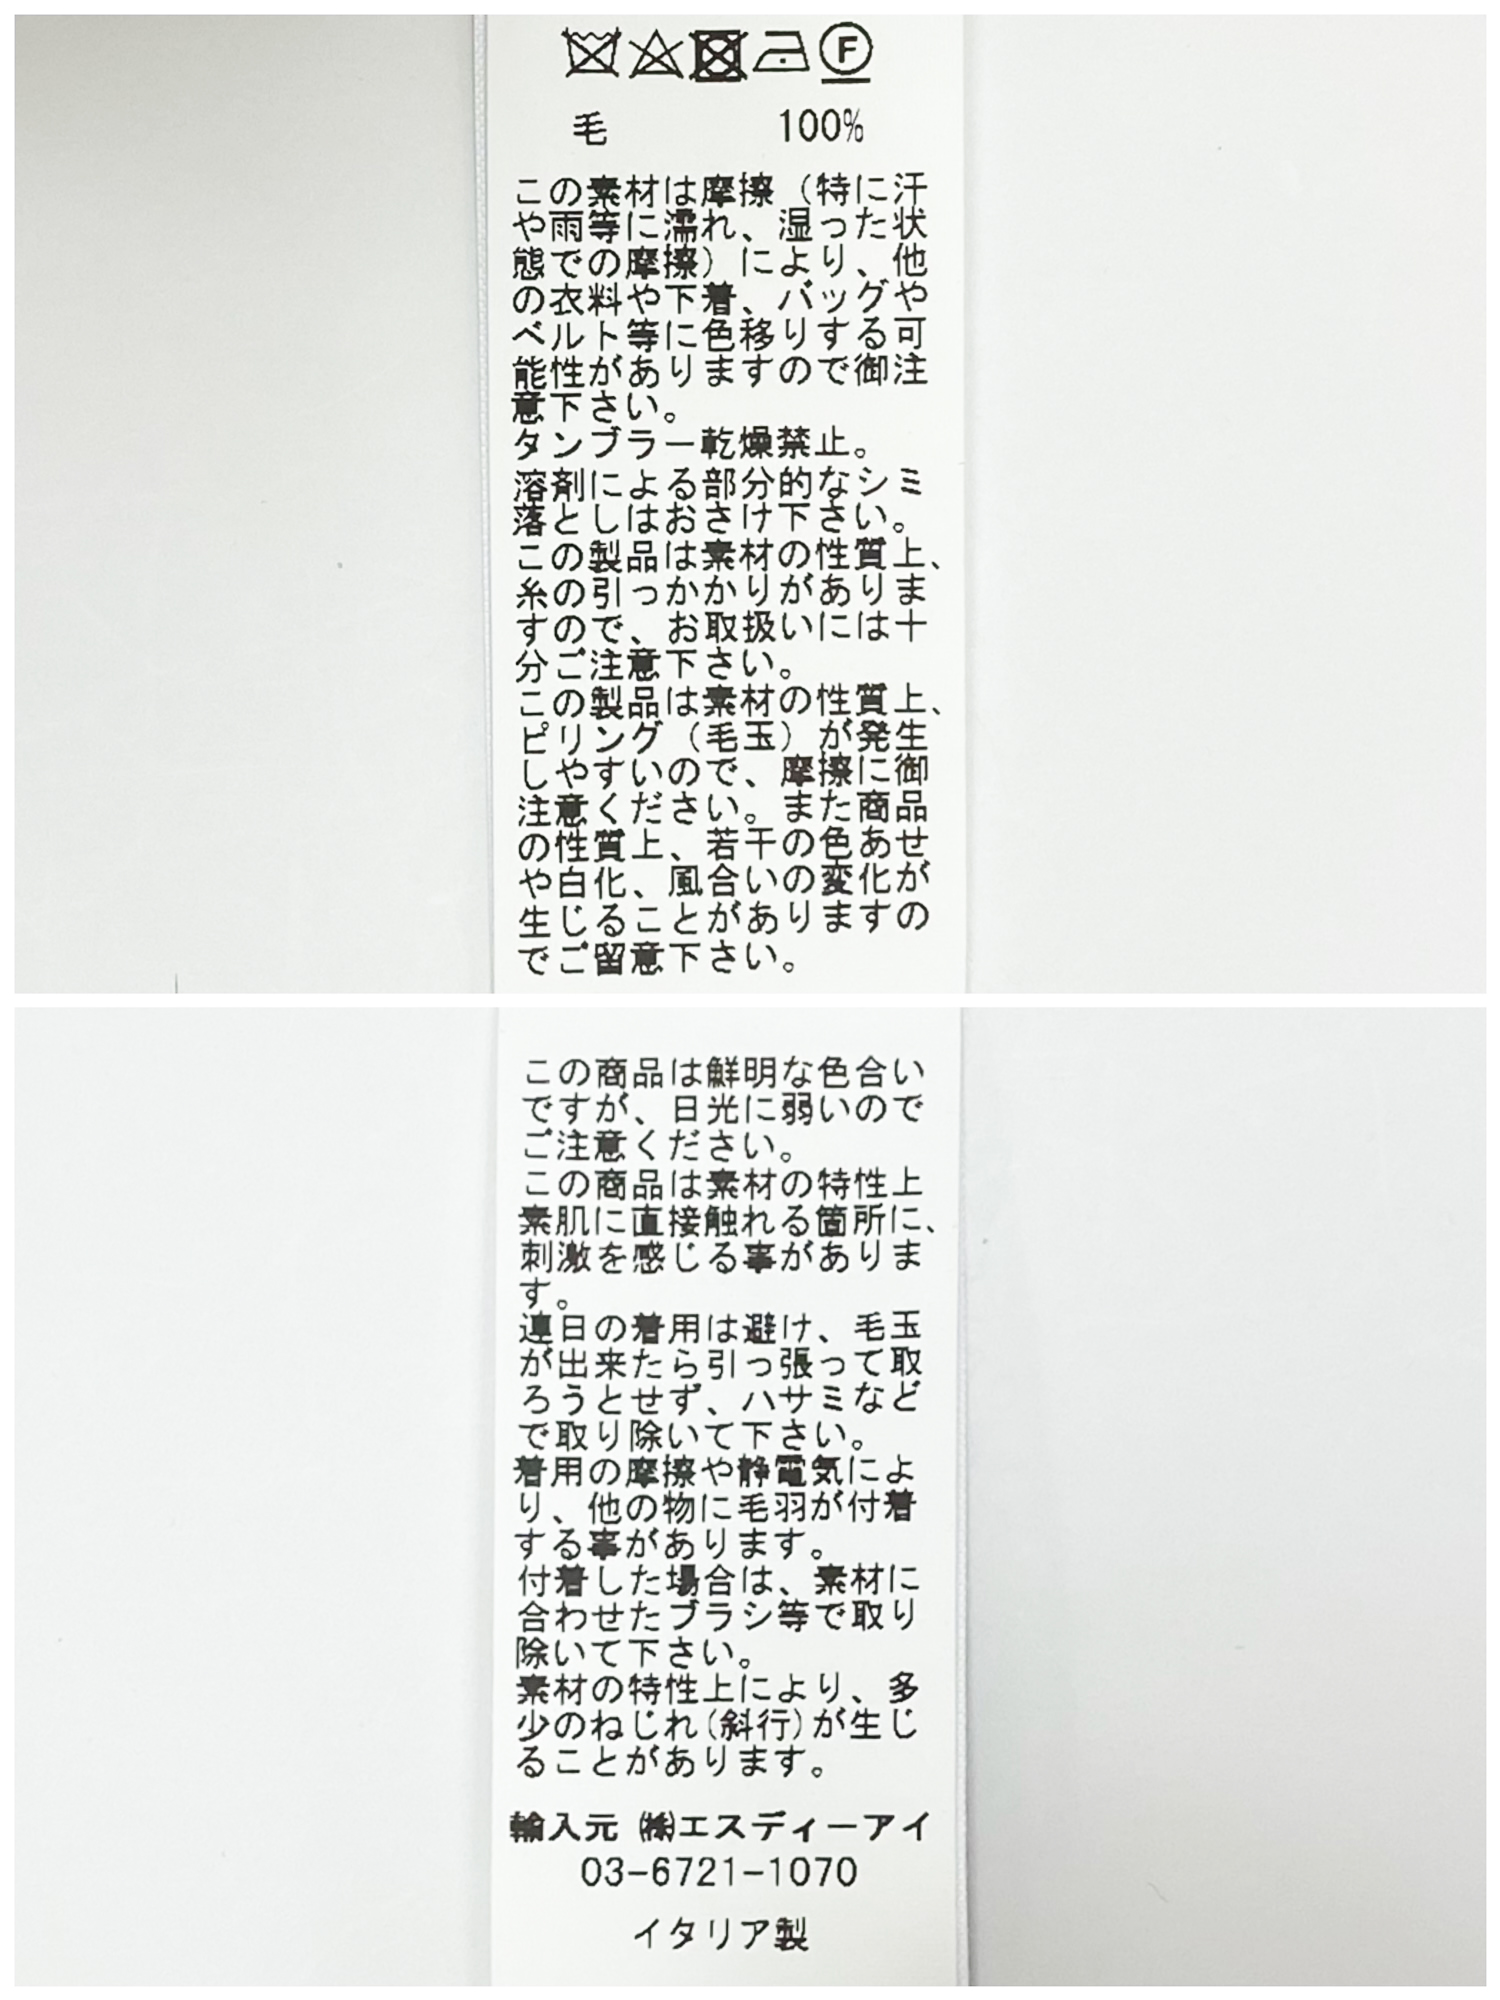 F
毛 100%
この素材は摩擦（特に汗
や雨等に濡れ、湿った状
態での摩擦）により、他
の衣料や下着、バッグや
ベルト等に色移りする可
能性がありますので御注
意下さい。
タンブラー乾燥禁止。
溶剤による部分的なシミ
落としはおさけ下さい。
この製品は素材の性質上、
糸の引っかかりがありま
すので、お取扱いには十
分ご注意下さい。
この製品は素材の性質上、
ピリング（毛玉）が発生
しやすいので、摩擦に御
注意ください。また商品
の性質上、若干の色あせ
や白化、風合いの変化が
生じることがありますの
でご留意下さい。
この商品は鮮明な色合い
ですが、日光に弱いので
ご注意ください。
この商品は素材の特性上
素肌に直接触れる箇所に、
刺激を感じる事がありま
す。
連日の着用は避け、毛玉
が出来たら引っ張って取
ろうとせず、ハサミなど
で取り除いて下さい。
着用の摩擦や静電気によ
り、他の物に毛羽が付着
する事があります。
付着した場合は、素材に
合わせたブラシ等で取り
除いて下さい。
素材の特性上により、多
少のねじれ(斜行)が生じ
ることがあります。
輸入元 ㈱エスディーアイ
03-6721-1070
イタリア製